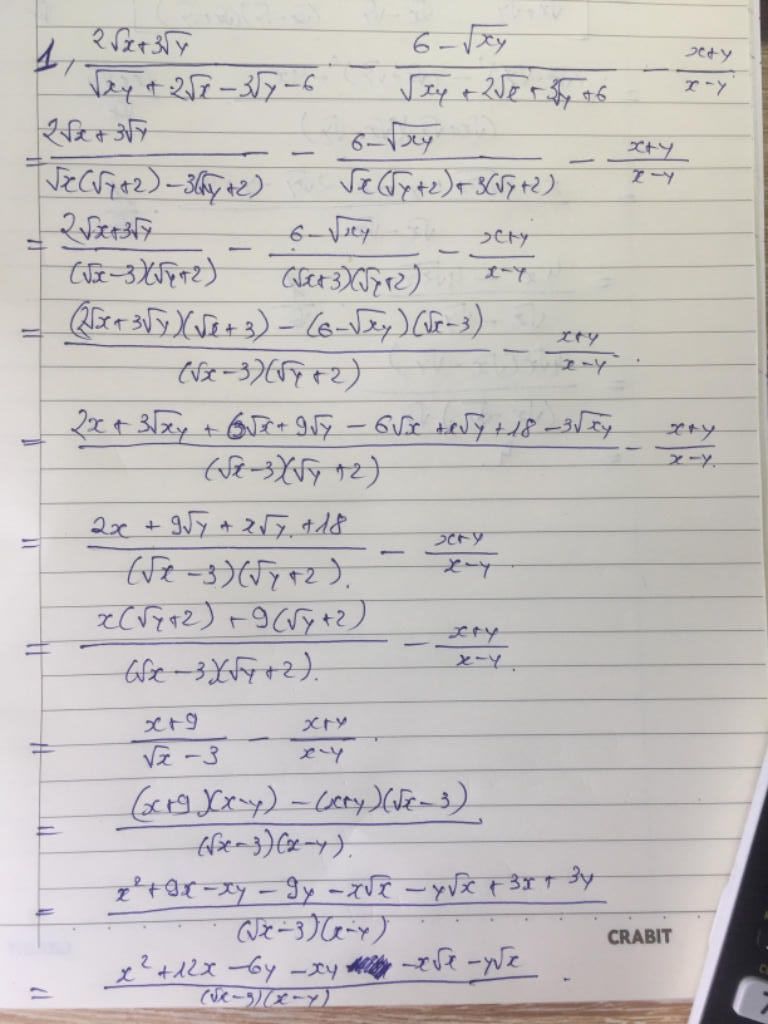 1, (2√x+3√y)/(√xy + 2√x - 3√y - 6) - (6-√xy)/(√xy + 2√x + 3√y + 6) - (x+y)/(x-y)
= (2√x + 3√y)/(√x(√y+2) - 3(√y+2)) - (6-√xy)/(√x(√y+2) + 3(√y+2)) - (x+y)/(x-y)
= (2√x+3√y)/((√x-3)(√y+2)) - (6-√xy)/((√x+3)(√y+2)) - (x+y)/(x-y)
= ((2√x+3√y)(√x+3) - (6-√xy)(√x-3))/((√x-3)(√y+2)) - (x+y)/(x-y).
= (2x + 3√xy + 6√x + 9√y - 6√x + x√y + 18 - 3√xy)/((√x-3)(√y+2)) - (x+y)/(x-y).
= (2x + 9√y + x√y + 18)/((√x-3)(√y+2)). - (x+y)/(x-y).
= (x(√y+2) + 9(√y+2))/((√x-3)(√y+2)). - (x+y)/(x-y).
= (x+9)/(√x-3) - (x+y)/(x-y).
= ((x+9)(x-y) - (x+y)(√x-3))/((√x-3)(x-y)).
= (x² + 9x - xy - 9y - x√x - y√x + 3x + 3y)/((√x-3)(x-y))
CRABIT
= (x² + 12x - 6y - xy - x√x - y√x)/((√x-3)(x-y)).
7